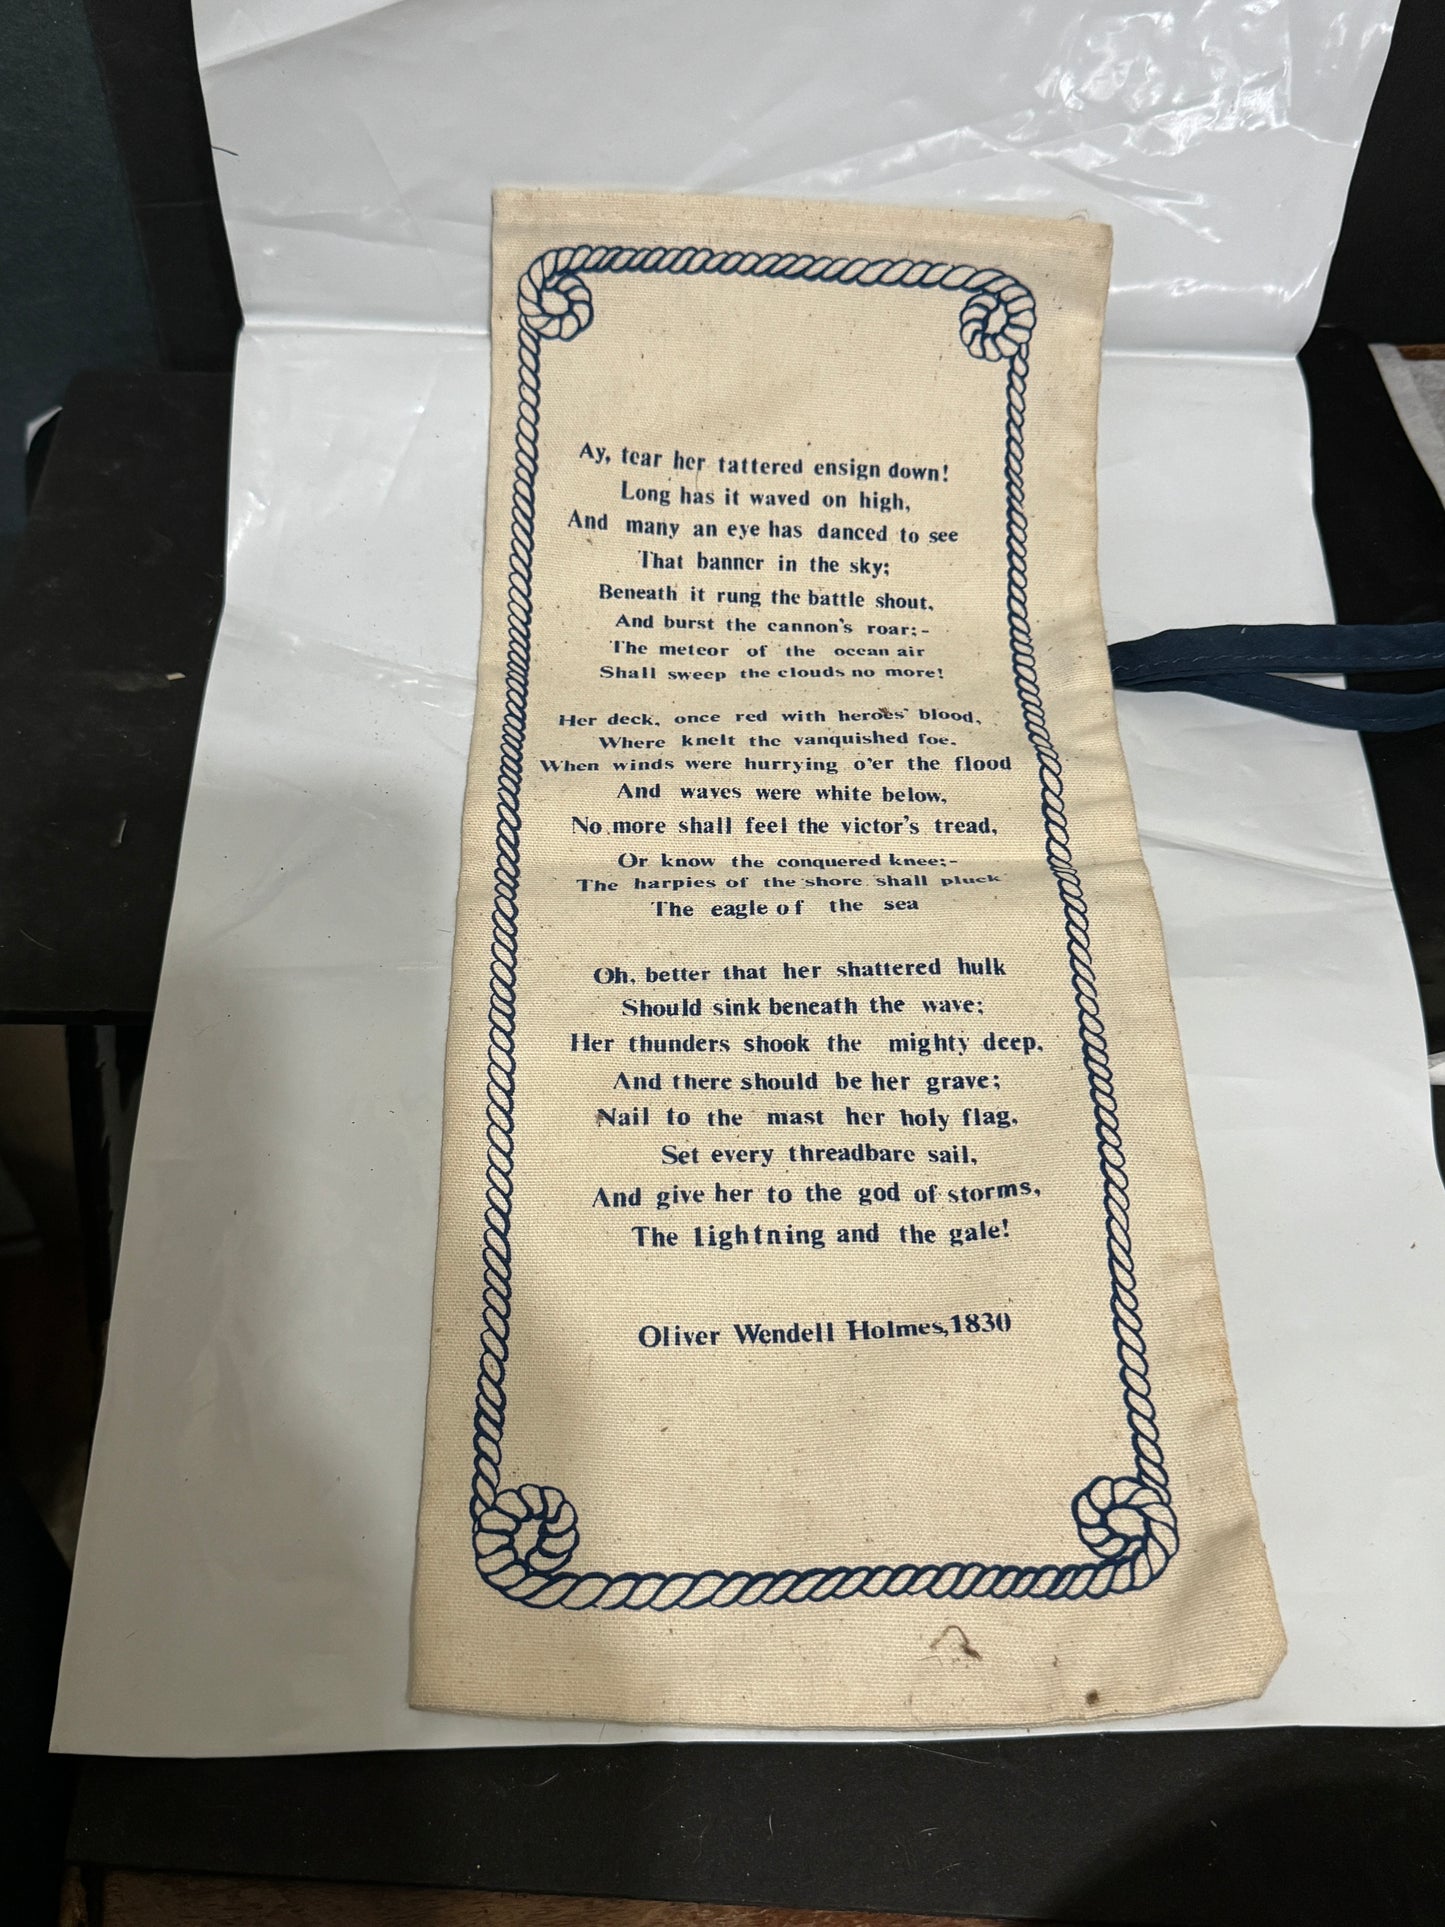 Ay, tear her tattered ensign down!
Long has it waved on high,
And many an eye has danced to see
That banner in the sky;
Beneath it rung the battle shout,
And burst the cannon's roar;-
The meteor of the ocean air
Shall sweep the clouds no more!
Her deck, once red with heroes' blood,
Where knelt the vanquished foe,
When winds were hurrying o'er the flood
And waves were white below,
No more shall feel the victor's tread,
Or know the conquered knee;-
The harpies of the shore shall pluck
The eagle of the sea
Oh, better that her shattered hulk
Should sink beneath the wave;
Her thunders shook the mighty deep,
And there should be her grave;
Nail to the mast her holy flag,
Set every threadbare sail,
And give her to the god of storms,
The lightning and the gale!
Oliver Wendell Holmes,1830